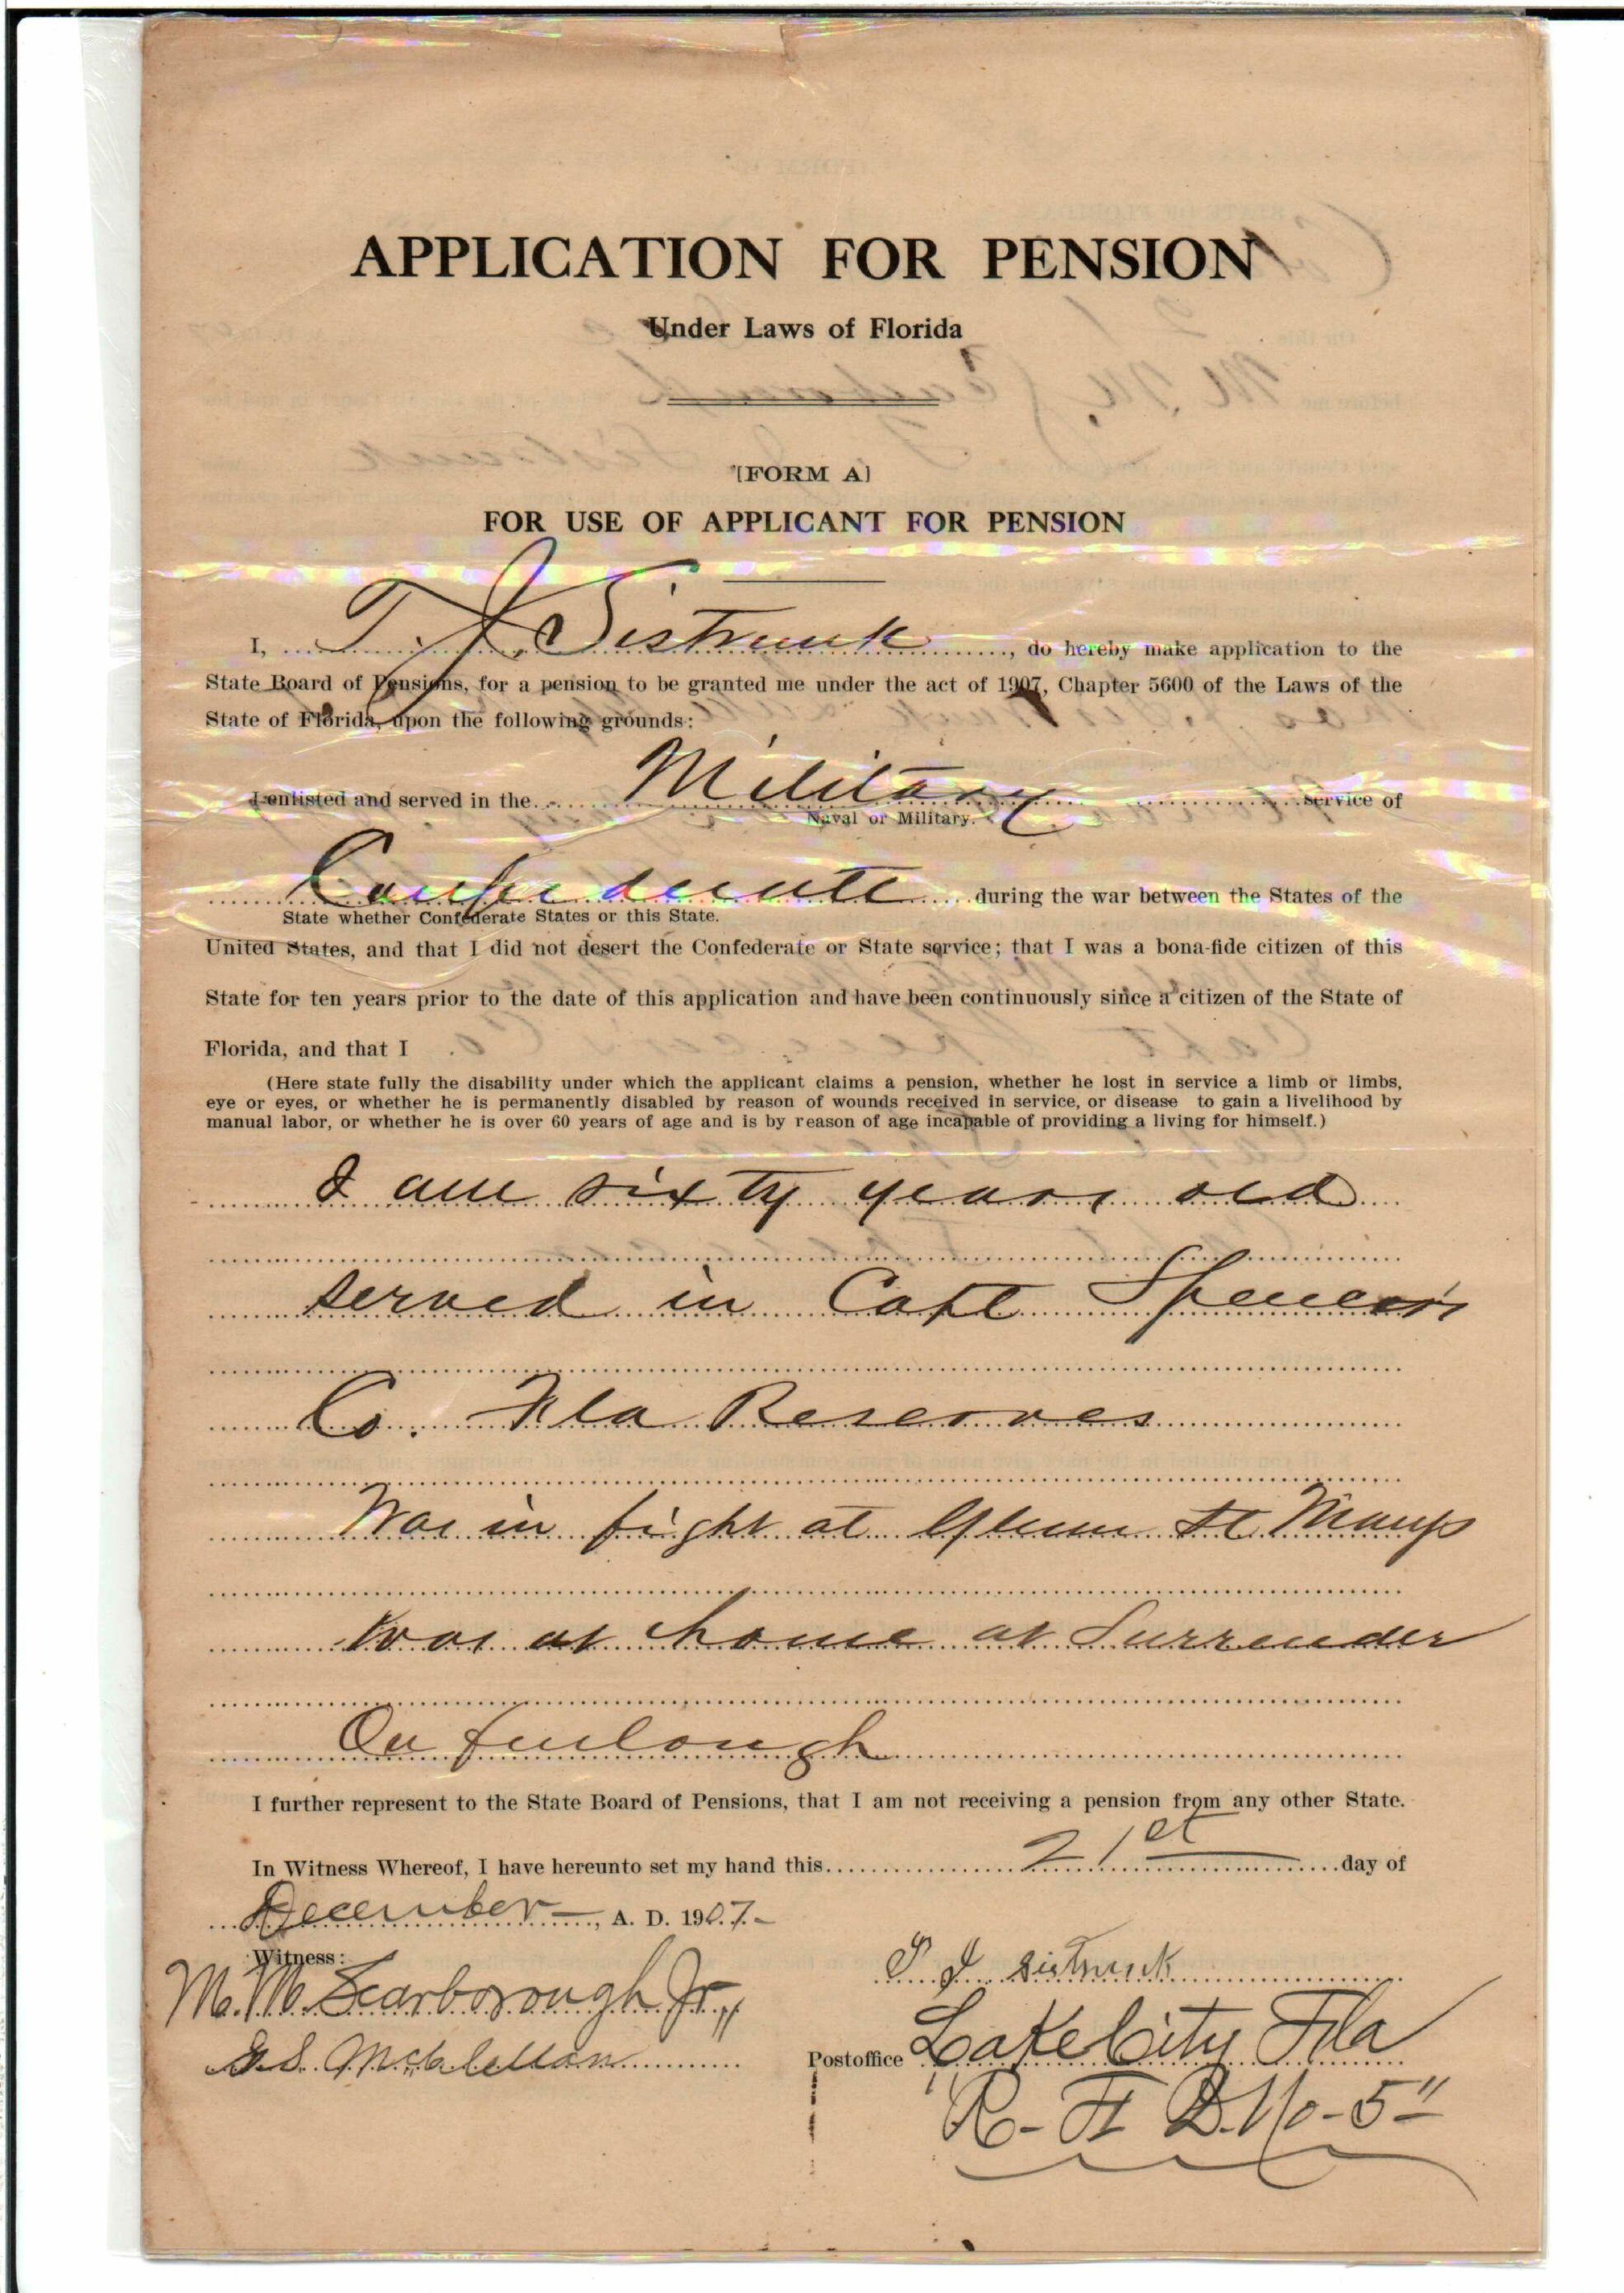 APPLICATION FOR PENSION
Under Laws of Florida
[FORM A]
FOR USE OF APPLICANT FOR PENSION
I, T. J. Sistrunk, do hereby make application to the
State Board of Pensions, for a pension to be granted me under the act of 1907, Chapter 5600 of the Laws of the
State of Florida, upon the following grounds:
I enlisted and served in the Military service of
Naval or Military.
Confederate during the war between the States of the
State whether Confederate States or this State.
United States, and that I did not desert the Confederate or State service; that I was a bona-fide citizen of this
State for ten years prior to the date of this application and have been continuously since a citizen of the State of
Florida, and that I
(Here state fully the disability under which the applicant claims a pension, whether he lost in service a limb or limbs,
eye or eyes, or whether he is permanently disabled by reason of wounds received in service, or disease to gain a livelihood by
manual labor, or whether he is over 60 years of age and is by reason of age incapable of providing a living for himself.)
I am sixty years old
served in Capt Spencer's
Co. Fla Reserves
Was in fight at St
Was at home at Surrender
On furlough
I further represent to the State Board of Pensions, that I am not receiving a pension from any other State.
In Witness Whereof, I have hereunto set my hand this 21st day of
December, A. D. 1907.
Witness:
T J sistrunk
M. M. Scarborough Jr.,
Postoffice Lake City Fla
G. S. McClellan
R-F D. No-5"